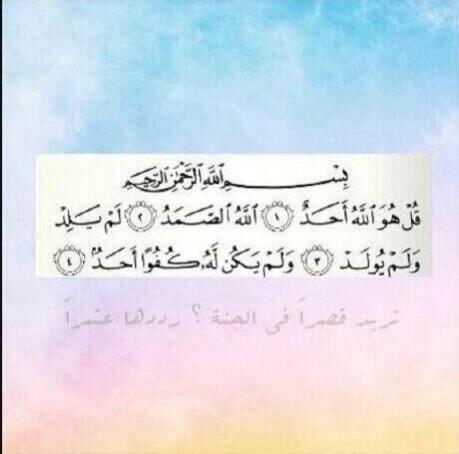 بِسْمِ ٱللَّهِ ٱلرَّحْمَٰنِ ٱلرَّحِيمِ
قُلْ هُوَ ٱللَّهُ أَحَدٌ ١ ٱللَّهُ ٱلصَّمَدُ ٢ لَمْ يَلِدْ
وَلَمْ يُولَدْ ٣ وَلَمْ يَكُن لَّهُۥ كُفُوًا أَحَدٌۢ ٤
تريد قصراً في الجنة ؟ رددها عشراً